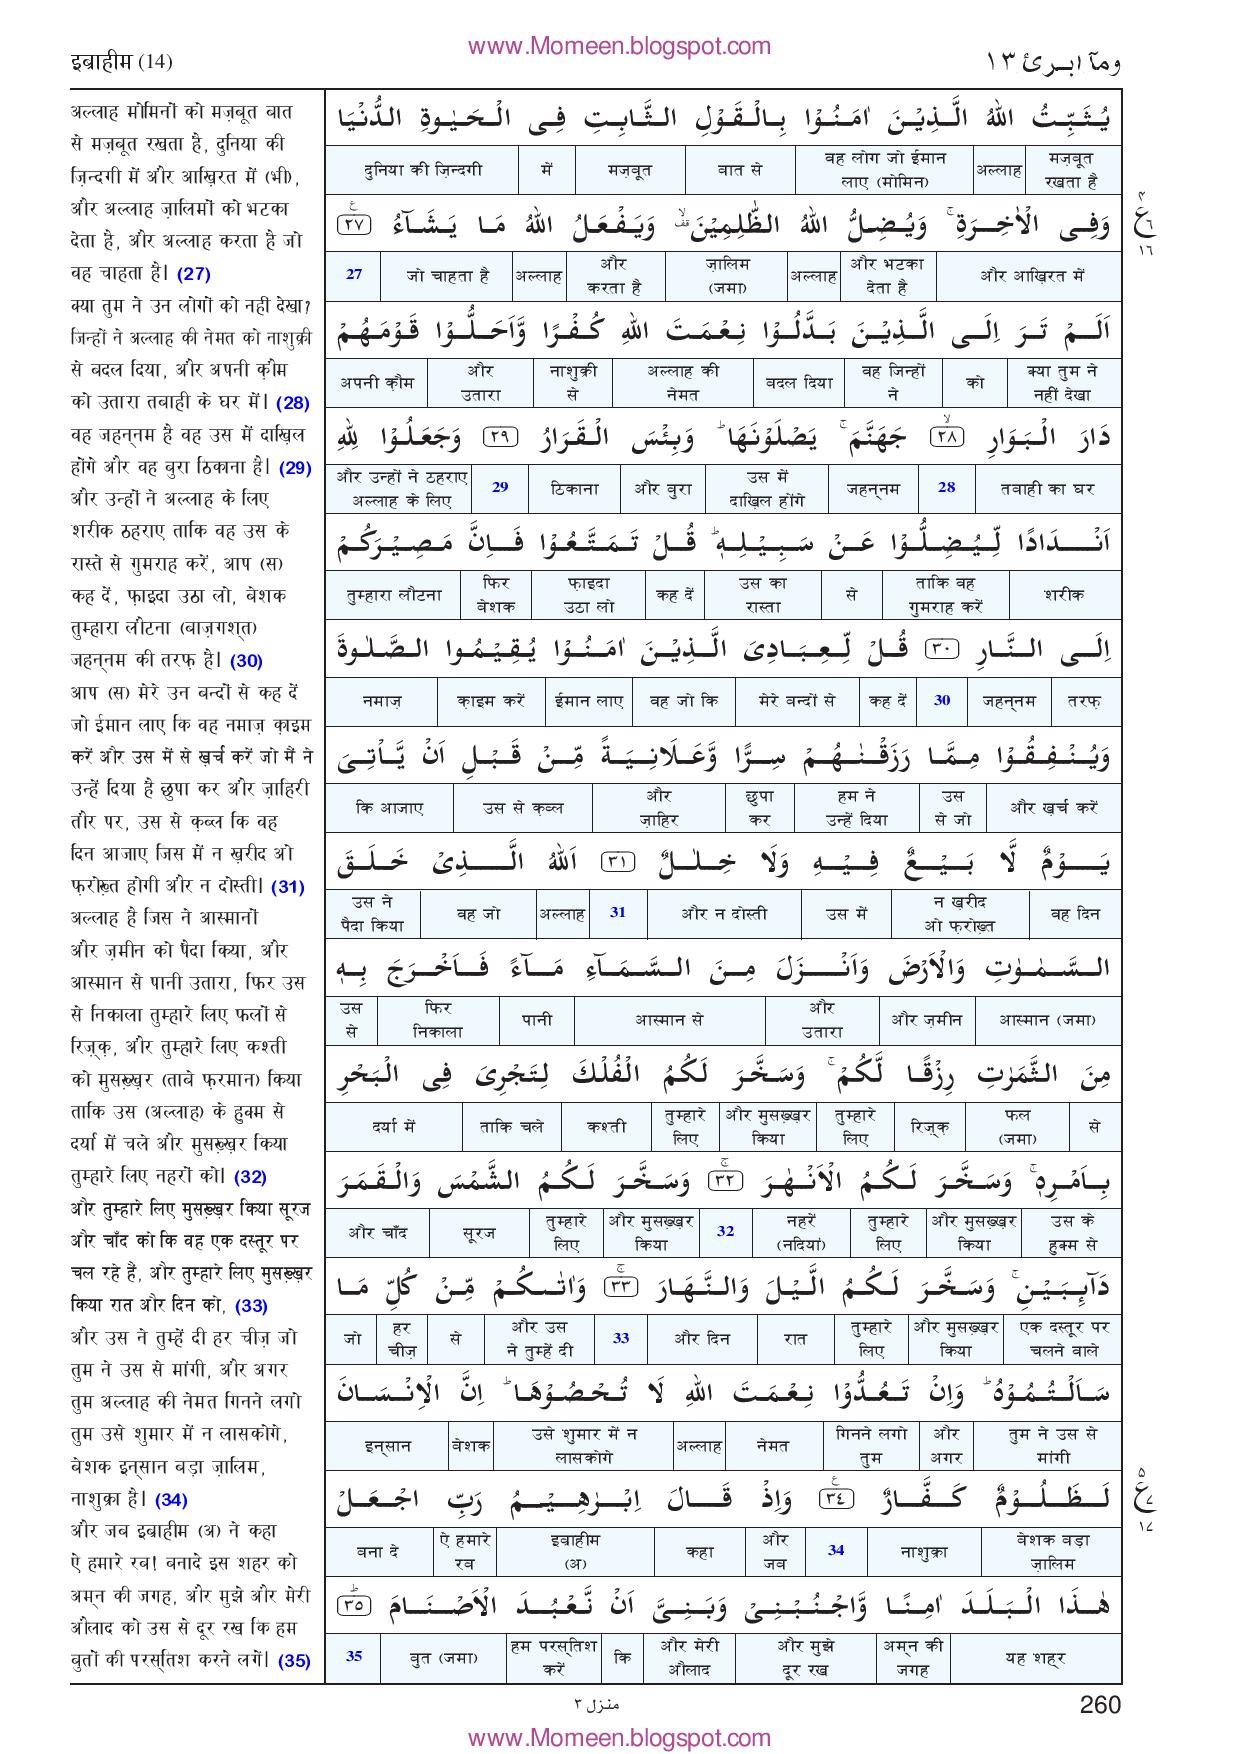 www.Momeen.blogspot.com
इब्राहीम (14)
ومآ ابـرئ ١٣
अल्लाह मोमिनों को मज़बूत बात
से मज़बूत रखता है, दुनिया की
ज़िन्दगी में और आख़िरत में (भी),
और अल्लाह ज़ालिमों को भटका
देता है, और अल्लाह करता है जो
वह चाहता है। (27)
क्या तुम ने उन लोगों को नहीं देखा?
जिन्हों ने अल्लाह की नेमत को नाशुक्री
से बदल दिया, और अपनी क़ौम
को उतारा तबाही के घर में। (28)
वह जहन्नम है वह उस में दाख़िल
होंगे और वह बुरा ठिकाना है। (29)
और उन्हों ने अल्लाह के लिए
शरीक ठहराए ताकि वह उस के
रास्ते से गुमराह करें, आप (स)
कह दें, फ़ाइदा उठा लो, बेशक
तुम्हारा लौटना (बाज़गश्त)
जहन्नम की तरफ़ है। (30)
आप (स) मेरे उन बन्दों से कह दें
जो ईमान लाए कि वह नमाज़ क़ाइम
करें और उस में से ख़र्च करें जो मैं ने
उन्हें दिया है छुपा कर और ज़ाहिरी
तौर पर, उस से क़ब्ल कि वह
दिन आजाए जिस में न ख़रीद ओ
फ़रोख़्त होगी और न दोस्ती। (31)
अल्लाह है जिस ने आस्मानों
और ज़मीन को पैदा किया, और
आस्मान से पानी उतारा, फिर उस
से निकाला तुम्हारे लिए फलों से
रिज़्क़, और तुम्हारे लिए कश्ती
को मुसख़्ख़र (ताबे फ़रमान) किया
ताकि उस (अल्लाह) के हुक्म से
दर्या में चले और मुसख़्ख़र किया
तुम्हारे लिए नहरों को। (32)
और तुम्हारे लिए मुसख़्ख़र किया सूरज
और चाँद को कि वह एक दस्तूर पर
चल रहे हैं, और तुम्हारे लिए मुसख़्ख़र
किया रात और दिन को, (33)
और उस ने तुम्हें दी हर चीज़ जो
तुम ने उस से मांगी, और अगर
तुम अल्लाह की नेमत गिनने लगो
तुम उसे शुमार में न लासकोगे,
बेशक इन्सान बड़ा ज़ालिम,
नाशुक्रा है। (34)
और जब इब्राहीम (अ) ने कहा
ऐ हमारे रब! बनादे इस शहर को
अम्न की जगह, और मुझे और मेरी
औलाद को उस से दूर रख कि हम
बुतों की परस्तिश करने लगें। (35)
يُثَبِّتُ اللهُ الَّذِيْنَ اٰمَنُوْا بِالْقَوْلِ الثَّابِتِ فِى الْحَيٰوةِ الدُّنْيَا
मज़बूत रखता है | अल्लाह | वह लोग जो ईमान लाए (मोमिन) | बात से | मज़बूत | में | दुनिया की ज़िन्दगी
وَفِى الْاٰخِرَةِ ۚ وَيُضِلُّ اللهُ الظّٰلِمِيْنَ ۙ وَيَفْعَلُ اللهُ مَا يَشَآءُ ٢٧
और आख़िरत में | और भटका देता है | अल्लाह | ज़ालिम (जमा) | और करता है | अल्लाह | जो चाहता है | 27
اَلَمْ تَرَ اِلَى الَّذِيْنَ بَدَّلُوْا نِعْمَتَ اللهِ كُفْرًا وَّاَحَلُّوْا قَوْمَهُمْ
क्या तुम ने नहीं देखा | को | वह जिन्हों ने | बदल दिया | अल्लाह की नेमत | नाशुक्री से | और उतारा | अपनी क़ौम
دَارَ الْبَوَارِ ٢٨ جَهَنَّمَ ۚ يَصْلَوْنَهَا ؕ وَبِئْسَ الْقَرَارُ ٢٩ وَجَعَلُوْا لِلّٰهِ
तबाही का घर | 28 | जहन्नम | उस में दाख़िल होंगे | और बुरा | ठिकाना | 29 | और उन्हों ने ठहराए अल्लाह के लिए
اَنْدَادًا لِّيُضِلُّوْا عَنْ سَبِيْلِهٖ ؕ قُلْ تَمَتَّعُوْا فَاِنَّ مَصِيْرَكُمْ
शरीक | ताकि वह गुमराह करें | से | उस का रास्ता | कह दें | फ़ाइदा उठा लो | फिर बेशक | तुम्हारा लौटना
اِلَى النَّارِ ٣٠ قُلْ لِّعِبَادِىَ الَّذِيْنَ اٰمَنُوْا يُقِيْمُوا الصَّلٰوةَ
तरफ़ | जहन्नम | 30 | कह दें | मेरे बन्दों से | वह जो कि | ईमान लाए | क़ाइम करें | नमाज़
وَيُنْفِقُوْا مِمَّا رَزَقْنٰهُمْ سِرًّا وَّعَلَانِيَةً مِّنْ قَبْلِ اَنْ يَّاْتِىَ
और ख़र्च करें | उस से जो | हम ने उन्हें दिया | छुपा कर | और ज़ाहिर | उस से क़ब्ल | कि आजाए
يَوْمٌ لَّا بَيْعٌ فِيْهِ وَلَا خِلٰلٌ ٣١ اَللهُ الَّذِىْ خَلَقَ
वह दिन | न ख़रीद ओ फ़रोख़्त | उस में | और न दोस्ती | 31 | अल्लाह | वह जो | उस ने पैदा किया
السَّمٰوٰتِ وَالْاَرْضَ وَاَنْزَلَ مِنَ السَّمَآءِ مَآءً فَاَخْرَجَ بِهٖ
आस्मान (जमा) | और ज़मीन | और उतारा | आस्मान से | पानी | फिर निकाला | उस से
مِنَ الثَّمَرٰتِ رِزْقًا لَّكُمْ ۚ وَسَخَّرَ لَكُمُ الْفُلْكَ لِتَجْرِىَ فِى الْبَحْرِ
से | फल (जमा) | रिज़्क़ | तुम्हारे लिए | और मुसख़्ख़र किया | तुम्हारे लिए | कश्ती | ताकि चले | दर्या में
بِاَمْرِهٖ ۚ وَسَخَّرَ لَكُمُ الْاَنْهٰرَ ٣٢ وَسَخَّرَ لَكُمُ الشَّمْسَ وَالْقَمَرَ
उस के हुक्म से | और मुसख़्ख़र किया | तुम्हारे लिए | नहरें (नदियां) | 32 | और मुसख़्ख़र किया | तुम्हारे लिए | सूरज | और चाँद
دَآئِبَيْنِ ۚ وَسَخَّرَ لَكُمُ الَّيْلَ وَالنَّهَارَ ٣٣ وَاٰتٰىكُمْ مِّنْ كُلِّ مَا
एक दस्तूर पर चलने वाले | और मुसख़्ख़र किया | तुम्हारे लिए | रात | और दिन | 33 | और उस ने तुम्हें दी | से | हर चीज़ | जो
سَاَلْتُمُوْهُ ؕ وَاِنْ تَعُدُّوْا نِعْمَتَ اللهِ لَا تُحْصُوْهَا ؕ اِنَّ الْاِنْسَانَ
तुम ने उस से मांगी | और अगर | गिनने लगो तुम | नेमत | अल्लाह | उसे शुमार में न लासकोगे | बेशक | इन्सान
لَظَلُوْمٌ كَفَّارٌ ٣٤ وَاِذْ قَالَ اِبْرٰهِيْمُ رَبِّ اجْعَلْ
बेशक बड़ा ज़ालिम | नाशुक्रा | 34 | और जब | कहा | इब्राहीम (अ) | ऐ हमारे रब | बना दे
هٰذَا الْبَلَدَ اٰمِنًا وَّاجْنُبْنِىْ وَبَنِىَّ اَنْ نَّعْبُدَ الْاَصْنَامَ ٣٥
यह शहर | अम्न की जगह | और मुझे दूर रख | और मेरी औलाद | कि | हम परस्तिश करें | बुत (जमा) | 35
ع ٤ ٦ ١٦
ع ٥ ٧ ١٧
منزل ٣
260
www.Momeen.blogspot.com